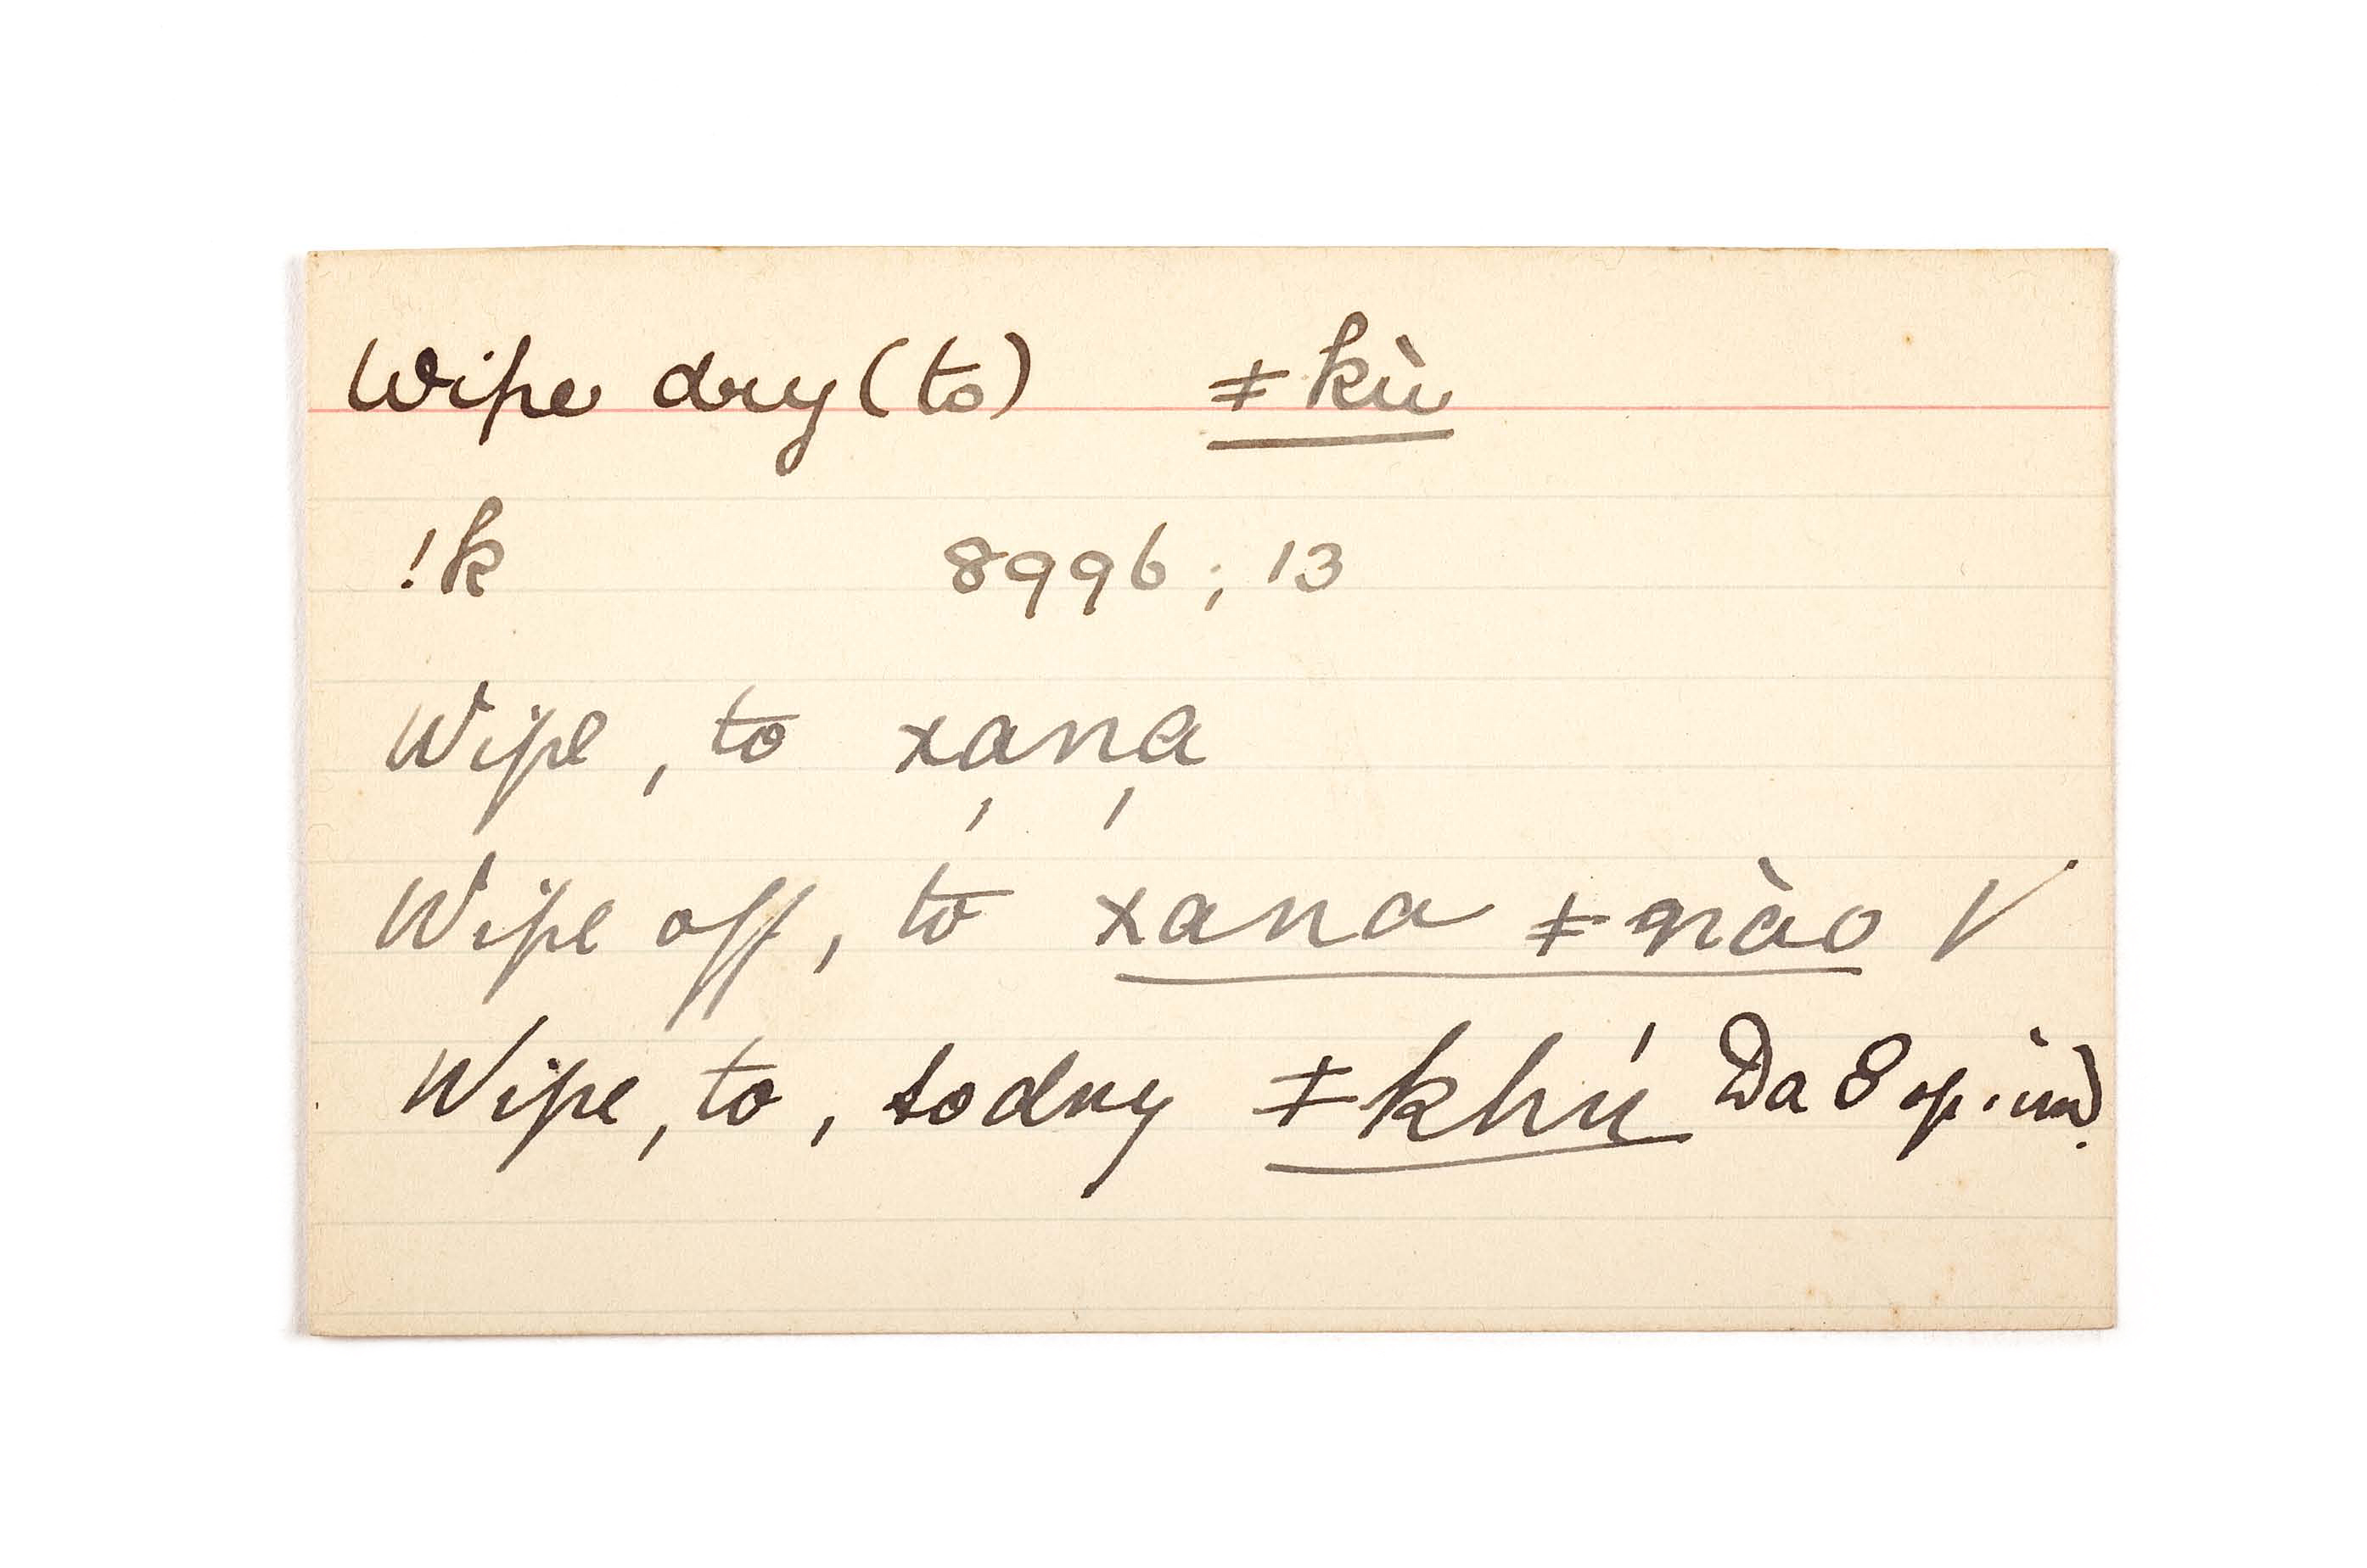 Wipe dry (to) ǂkù
!k 8996; 13
Wipe, to xa̗na̗
Wipe off, to xana ǂnào √
Wipe, to, to dry ǂkhú Da 8 op.